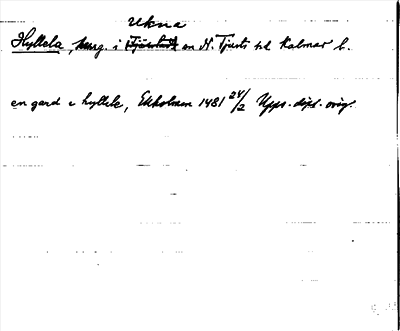 Ukna
Hyllela, herrg. i sn N. Tjusts hd Kalmar l.
en gard i hyllele, Ekholmen 1481 24/2 Upps. dipl. orig.